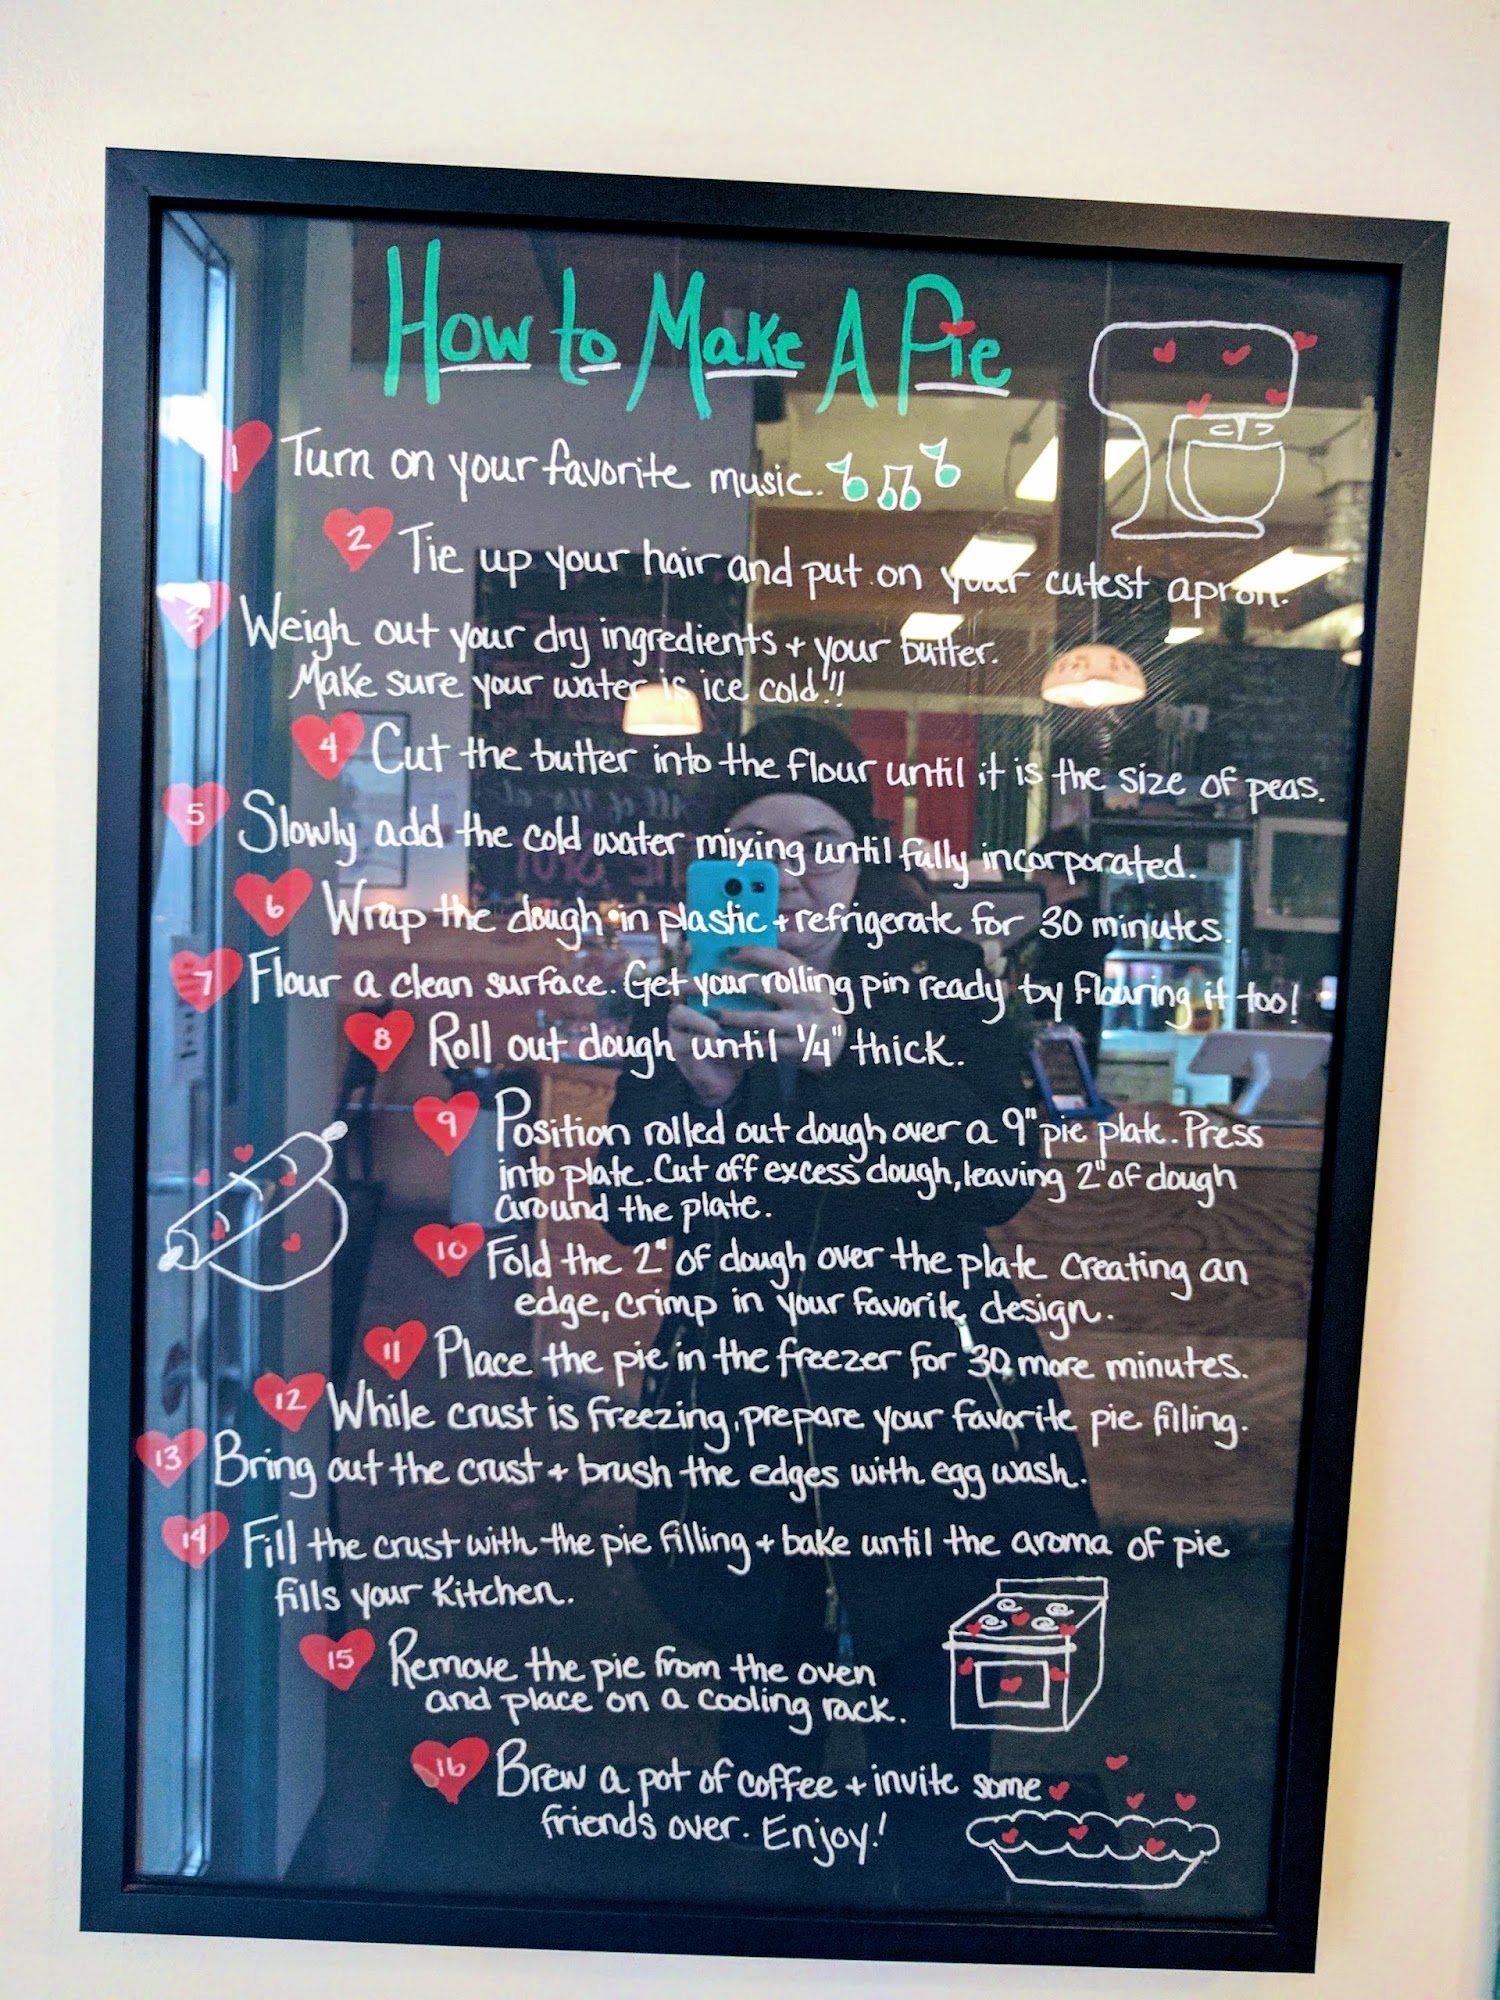 How to Make A Pie
1 Turn on your favorite music.
2 Tie up your hair and put on your cutest apron.
3 Weigh out your dry ingredients + your butter.
Make sure your water is ice cold!!
4 Cut the butter into the flour until it is the size of peas.
5 Slowly add the cold water mixing until fully incorporated.
6 Wrap the dough in plastic + refrigerate for 30 minutes.
7 Flour a clean surface. Get your rolling pin ready by flouring it too!
8 Roll out dough until 1/4" thick.
9 Position rolled out dough over a 9" pie plate. Press
into plate. Cut off excess dough, leaving 2" of dough
around the plate.
10 Fold the 2" of dough over the plate creating an
edge, crimp in your favorite design.
11 Place the pie in the freezer for 30 more minutes.
12 While crust is freezing, prepare your favorite pie filling.
13 Bring out the crust + brush the edges with egg wash.
14 Fill the crust with the pie filling + bake until the aroma of pie
fills your kitchen.
15 Remove the pie from the oven
and place on a cooling rack.
16 Brew a pot of coffee + invite some
friends over. Enjoy!